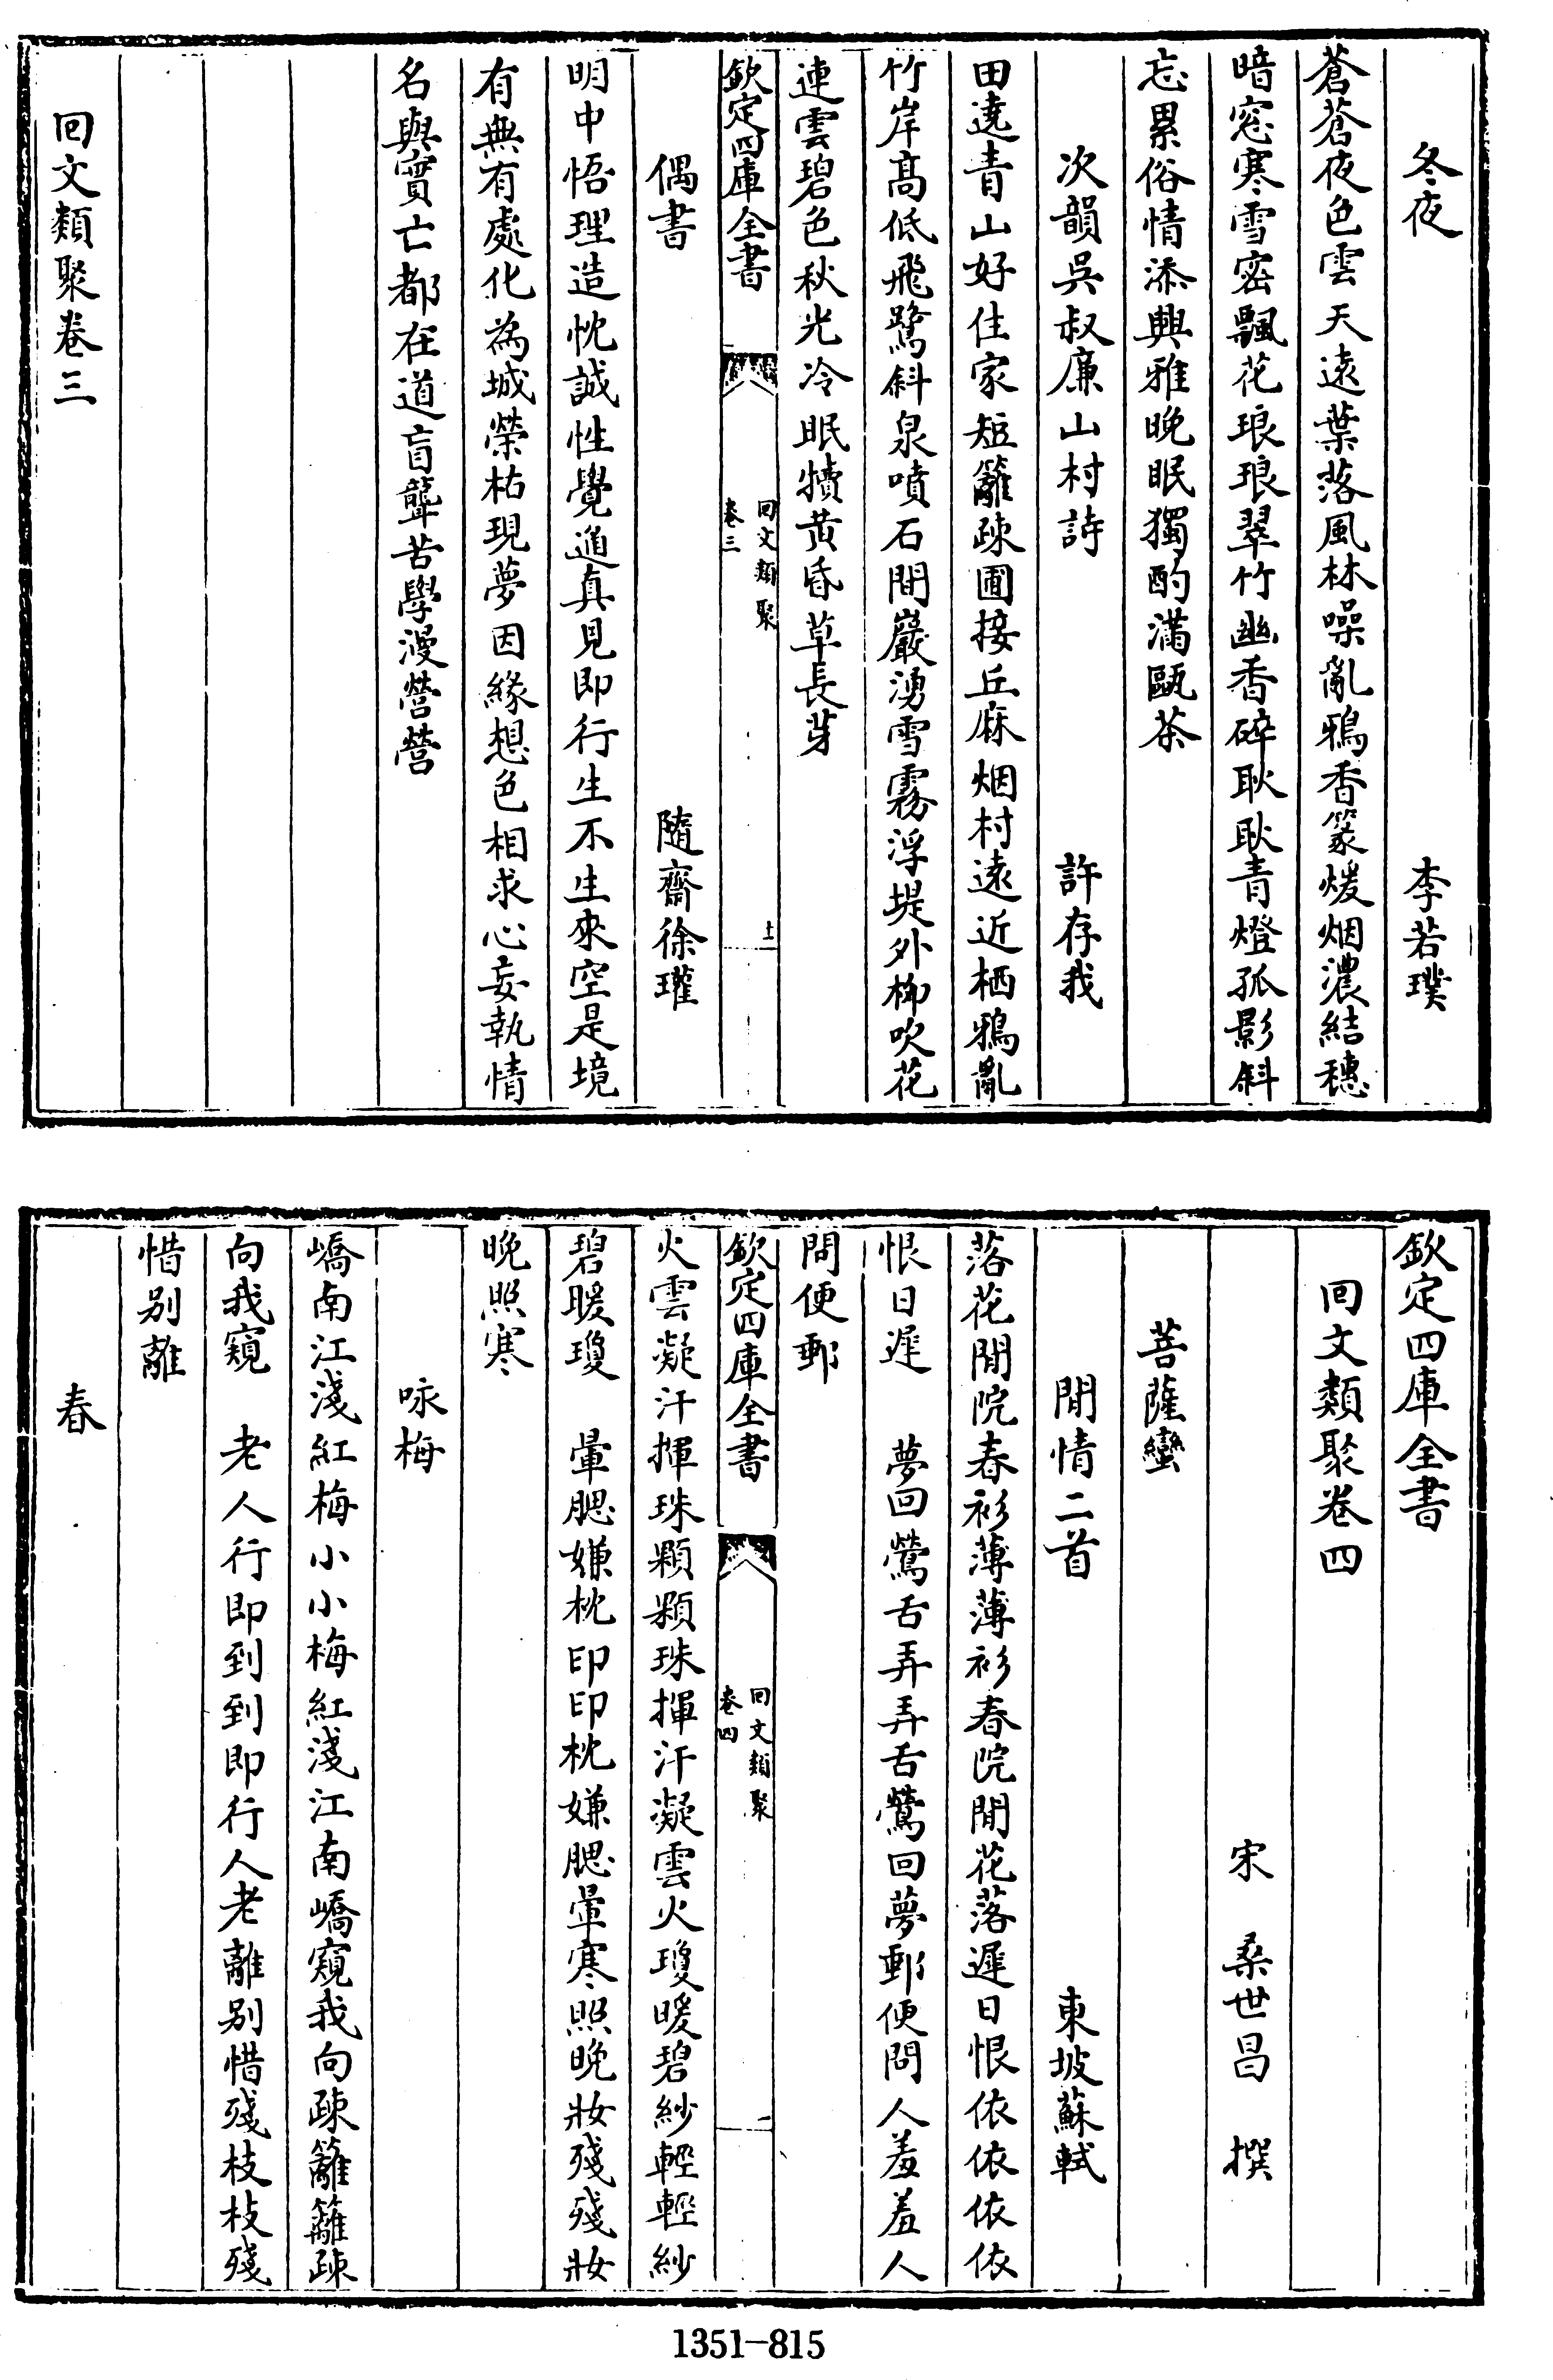 冬夜　李若璞
蒼蒼夜色雲天遠葉落風林噪亂鴉香篆煖烟濃結穗
暗窓寒雪密飄花琅琅翠竹幽香碎耿耿青燈孤影斜
忘累俗情添興雅晚眠獨酌滿甌茶
次韻吳叔廉山村詩　許存我
田遶青山好住家短籬疎圃接丘麻烟村遠近栖鴉亂
竹岸高低飛鷺斜泉噴石間巖湧雪霧浮堤外柳吹花
連雲碧色秋光冷眠犢黃昏草長芽
欽定四庫全書
回文類聚
卷三
十一
偶書　隨齋徐瓘
明中悟理造忱誠性覺適真見即行生不生來空是境
有無有處化為城榮枯現夢因緣想色相求心妄執情
名與實亡都在道盲聾苦學漫營營
回文類聚卷三
欽定四庫全書
回文類聚卷四
宋　桑世昌　撰
菩薩蠻
閒情二首　東坡蘇軾
落花閒院春衫薄薄衫春院閒花落遲日恨依依依依
恨日遲　夢回鶯舌弄弄舌鶯回夢郵便問人羞羞人
問便郵
欽定四庫全書
回文類聚
卷四
一
火雲凝汗揮珠顆顆珠揮汗凝雲火瓊暖碧紗輕輕紗
碧暖瓊　暈腮嫌枕印印枕嫌腮暈寒照晚妝殘殘妝
晚照寒
咏梅
嶠南江淺紅梅小小梅紅淺江南嶠窺我向疎籬籬疎
向我窺　老人行即到到即行人老離别惜殘枝枝殘
惜别離
春
1351-815